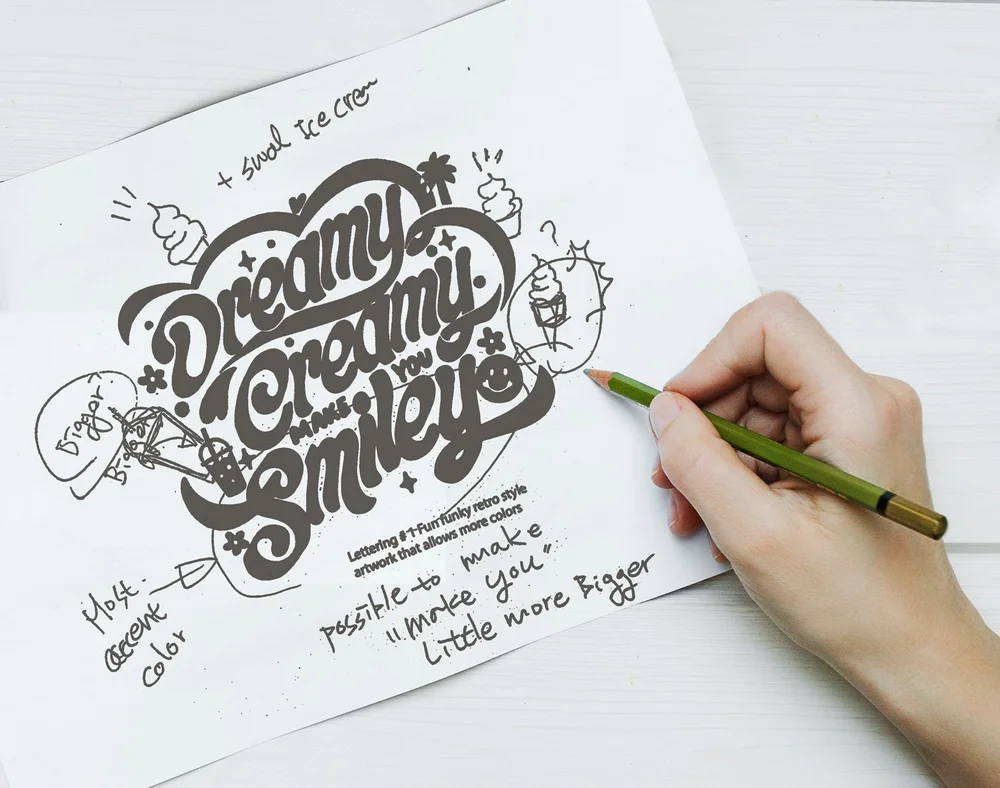 + swal Ice crem
Dreamy
Creamy
MAKE YOU
Smiley
Bigger
Lettering #1-Fun funky retro style
artwork that allows more colors
possible to make
"make you"
Little more Bigger
Most
accent
color